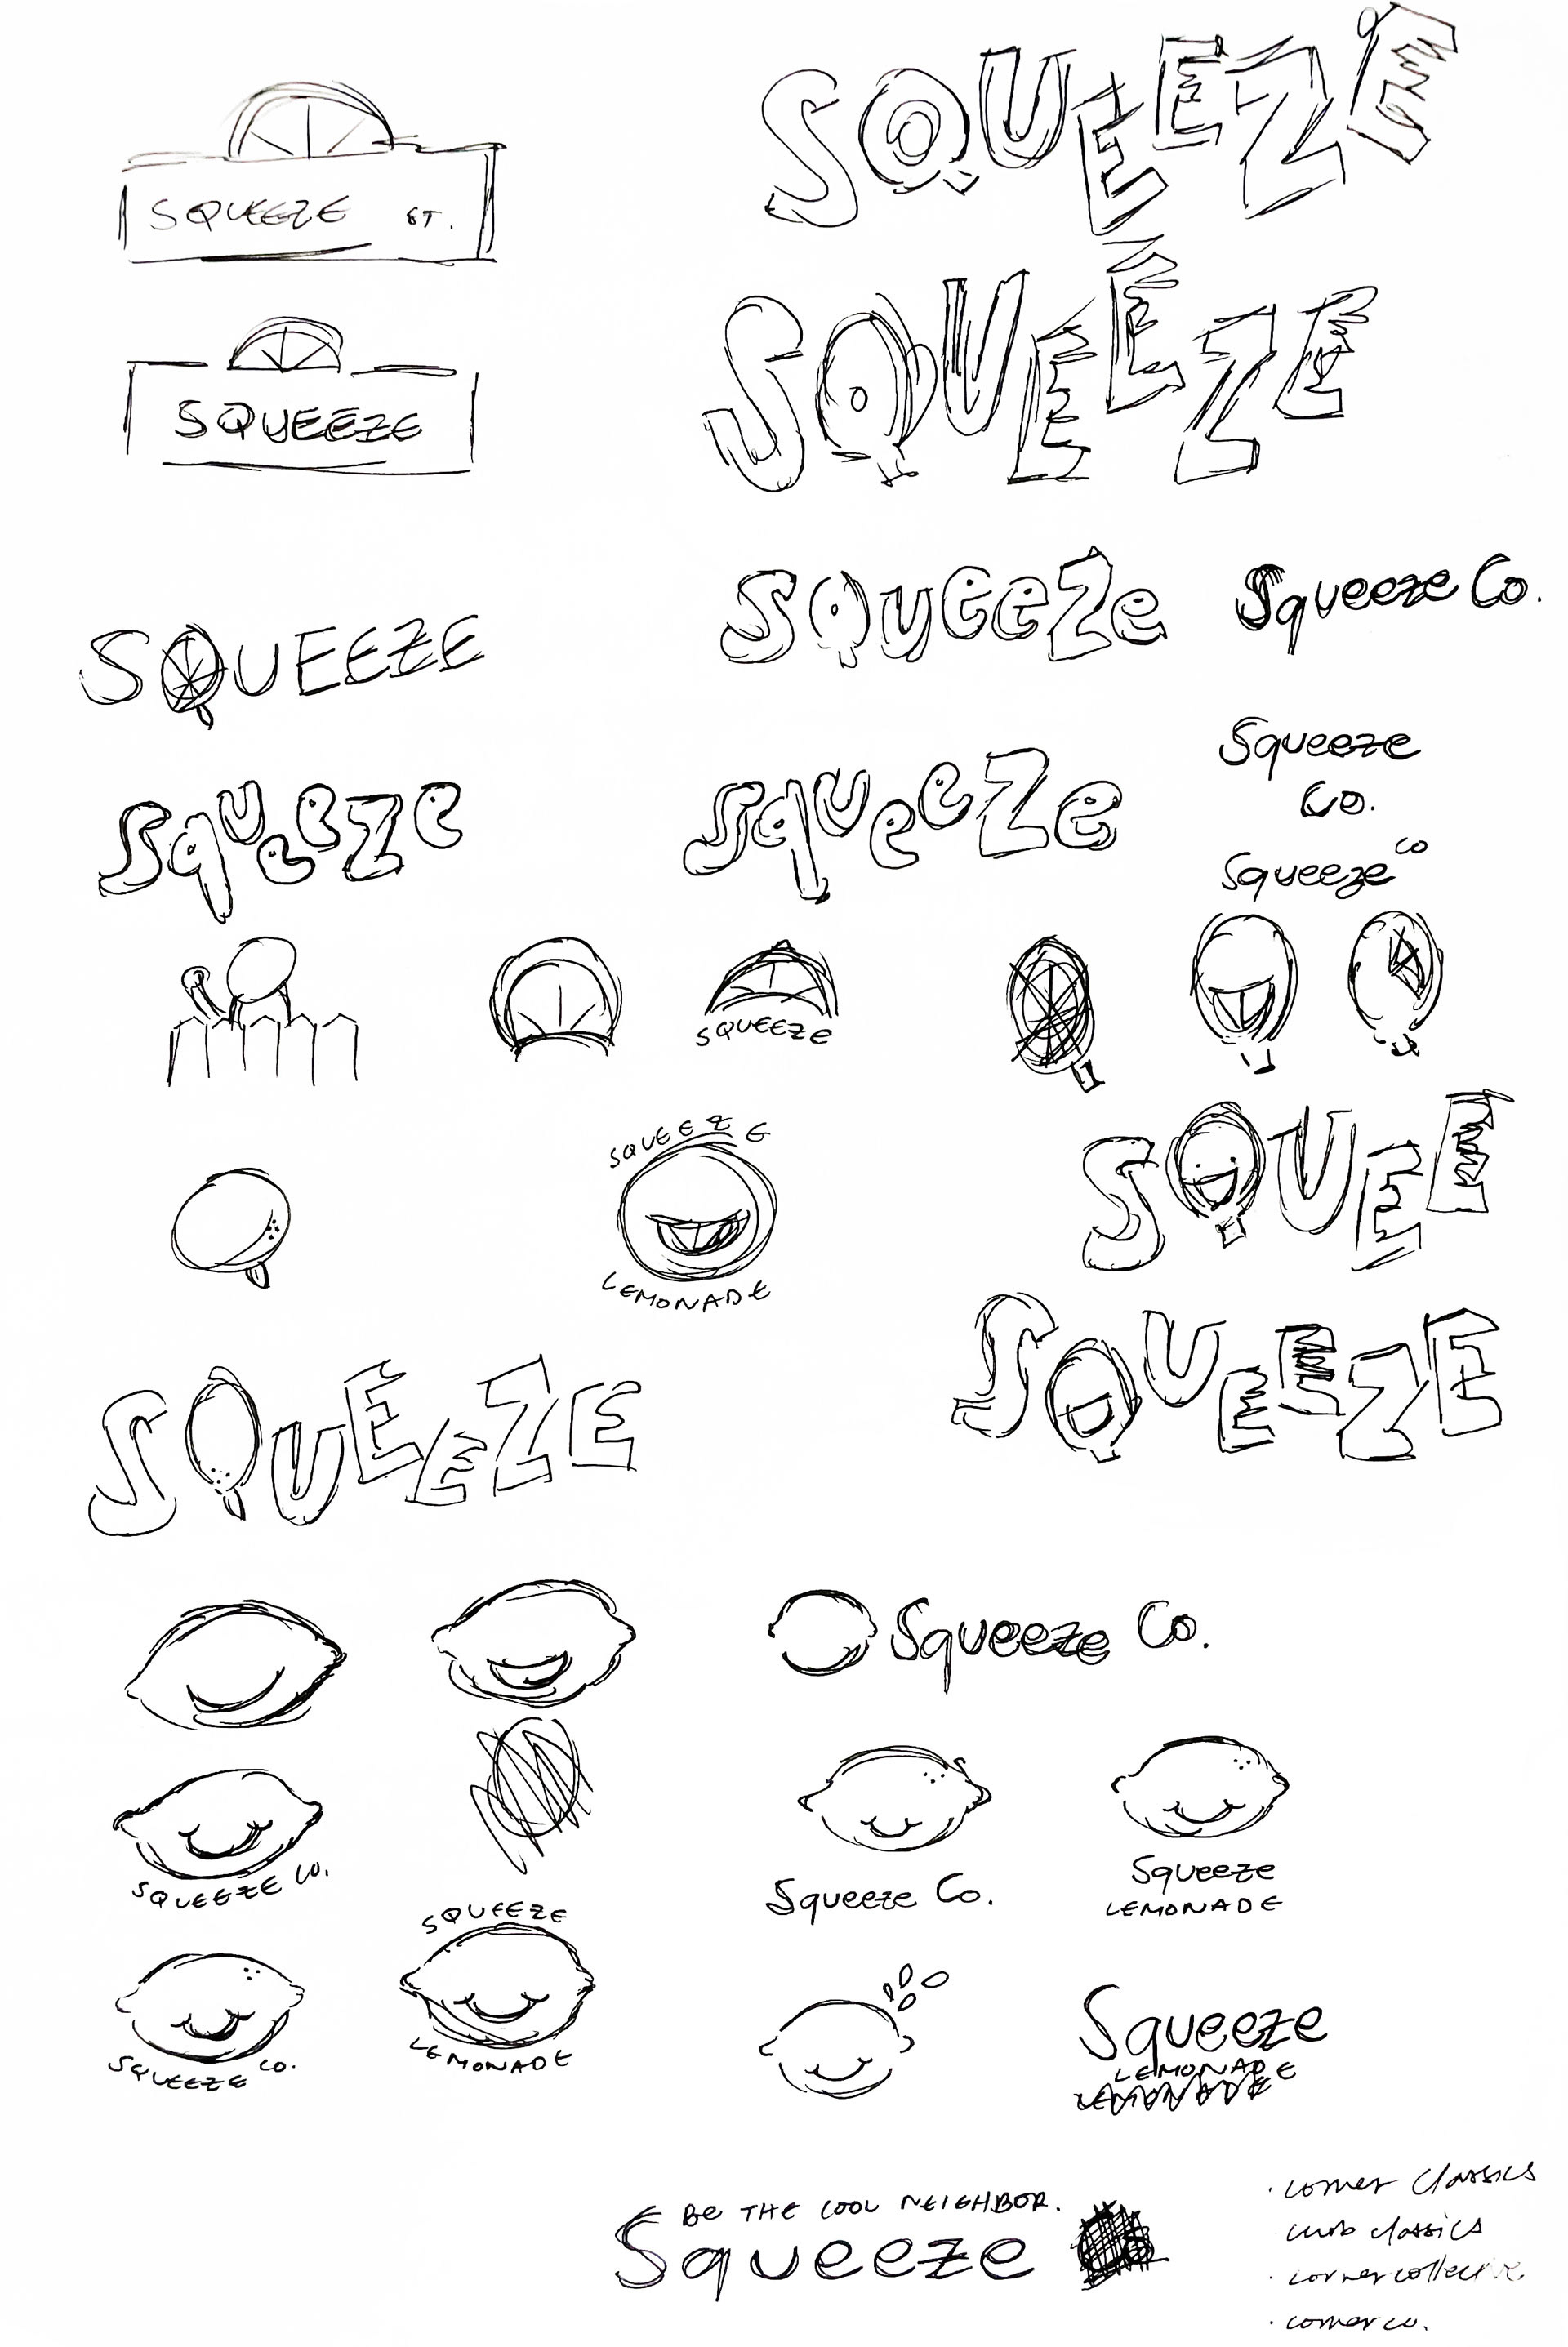 SQUEEZE
SQUEEZE ST.
SQUEEZE
SQUEEZE
Squeeze Squeeze Co.
SQUEEZE
Squeeze
Co.
Squeeze Squeeze
Squeeze co
SQUEEZE
SQUEE
SQUEEZE
LEMONADE
SQUEEZE
SQUEEZE
Squeeze Co.
SQUEEZE CO.
Squeeze Co.
Squeeze
LEMONADE
SQUEEZE
LEMONADE
SQUEEZE CO.
Squeeze
LEMONADE
LEMONADE
BE THE COOL NEIGHBOR.
Squeeze
· corner classics
curb classics
· corner collective
· corner co.